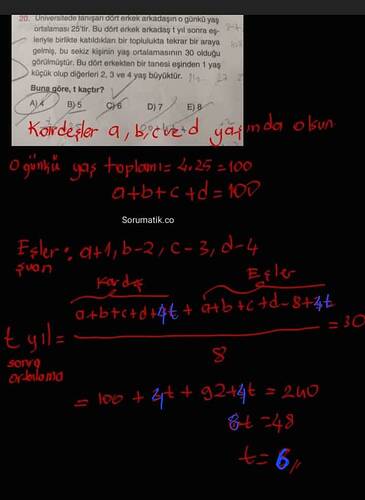 20. Üniversitede tanışan dört erkek arkadaşın o günkü yaş
ortalaması 25'tir. Bu dört erkek arkadaş t yıl sonra eş-
leriyle birlikte katıldıkları bir toplulukta tekrar bir araya
gelmiş, bu sekiz kişinin yaş ortalamasının 30 olduğu
görülmüştür. Bu dört erkekten bir tanesi eşinden 1 yaş
küçük olup diğerleri 2, 3 ve 4 yaş büyüktür.
Buna göre, t kaçtır?
A) 4 B) 5 C) 6 D) 7 E) 8
Kardeşler a, b, c ve d yaşında olsun
O günkü yaş toplamı = 4.25 = 100
a+b+c+d = 100
Sorumatik.co
Eşler : a+1, b-2, c-3, d-4
şuan
Kardş Eşler
a+b+c+d+4t + a+b+c+d-8+4t
t yıl = = 30
sonra 8
ortalama
= 100 + 4t + 92+4t = 240
8t = 48
t = 6//